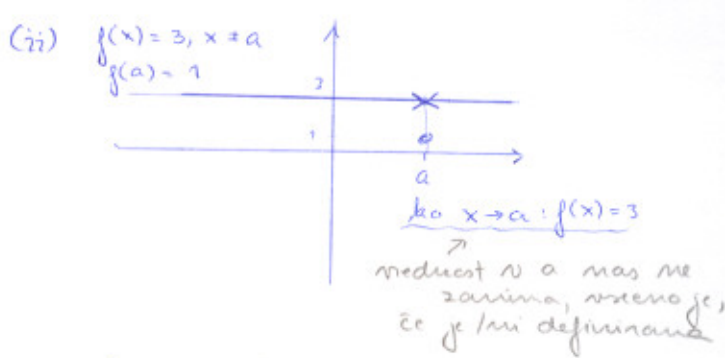 (ii) f(x) = 3, x ≠ a
f(a) = 1
3
1
a
ko x → a : f(x) = 3
vrednost v a nas ne
zanima, vseeno je,
če je / ni definirana